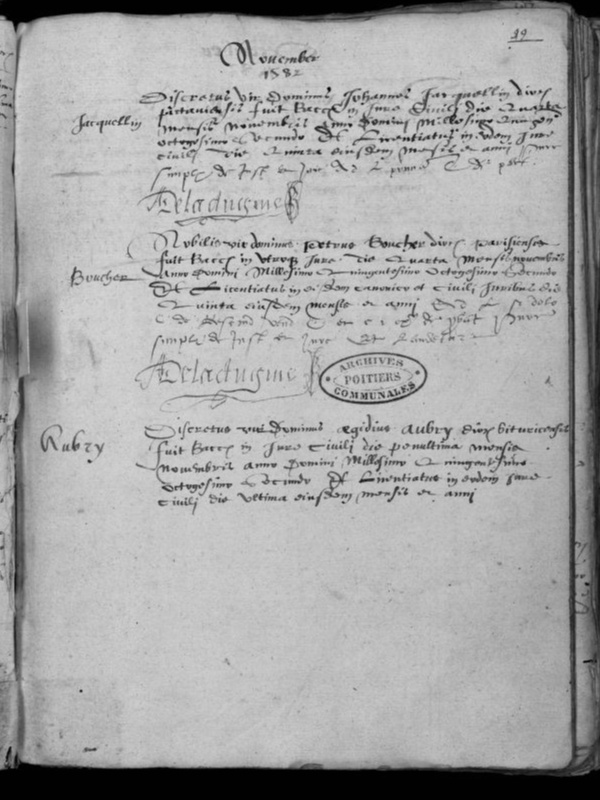 49
November
1582
Jacquellin
Discretus vir Dominus Johannes Jacquellin dioc
pictaviensis fuit Bacc in Jure Civili die Quarta
mensis Novembris anno Domini Millesimo Quingen
octogesimo secundo Et Licentiatus in eodem Jure
civili die Quinta eiusdem mensis et anni
simpl de Inst et Jure
Deladugnie
Boucher
Nobilis vir dominus petrus Boucher dioc parisiensis
fuit Bacc in utroq Jure die Quarta Mensis novembris
Anno Domini Millesimo Quingentesimo Octogesimo Secundo
Et Licentiatus in eisdem canonico et Civili Juribus die
Quinta eiusdem mensis et anni
simpl de Inst et Jure
Deladugnie
ARCHIVES
POITIERS
COMMUNALES
Aubry
Discretus vir Dominus ægidius Aubry dioc bituricensis
fuit Bacc in Jure Civilj die penultima mensis
Novembris anno Domini Millesimo Quingentesimo
Octogesimo secundo Et Licentiatus in eodem Jure
Civilj die Ultima eiusdem mensis et anni